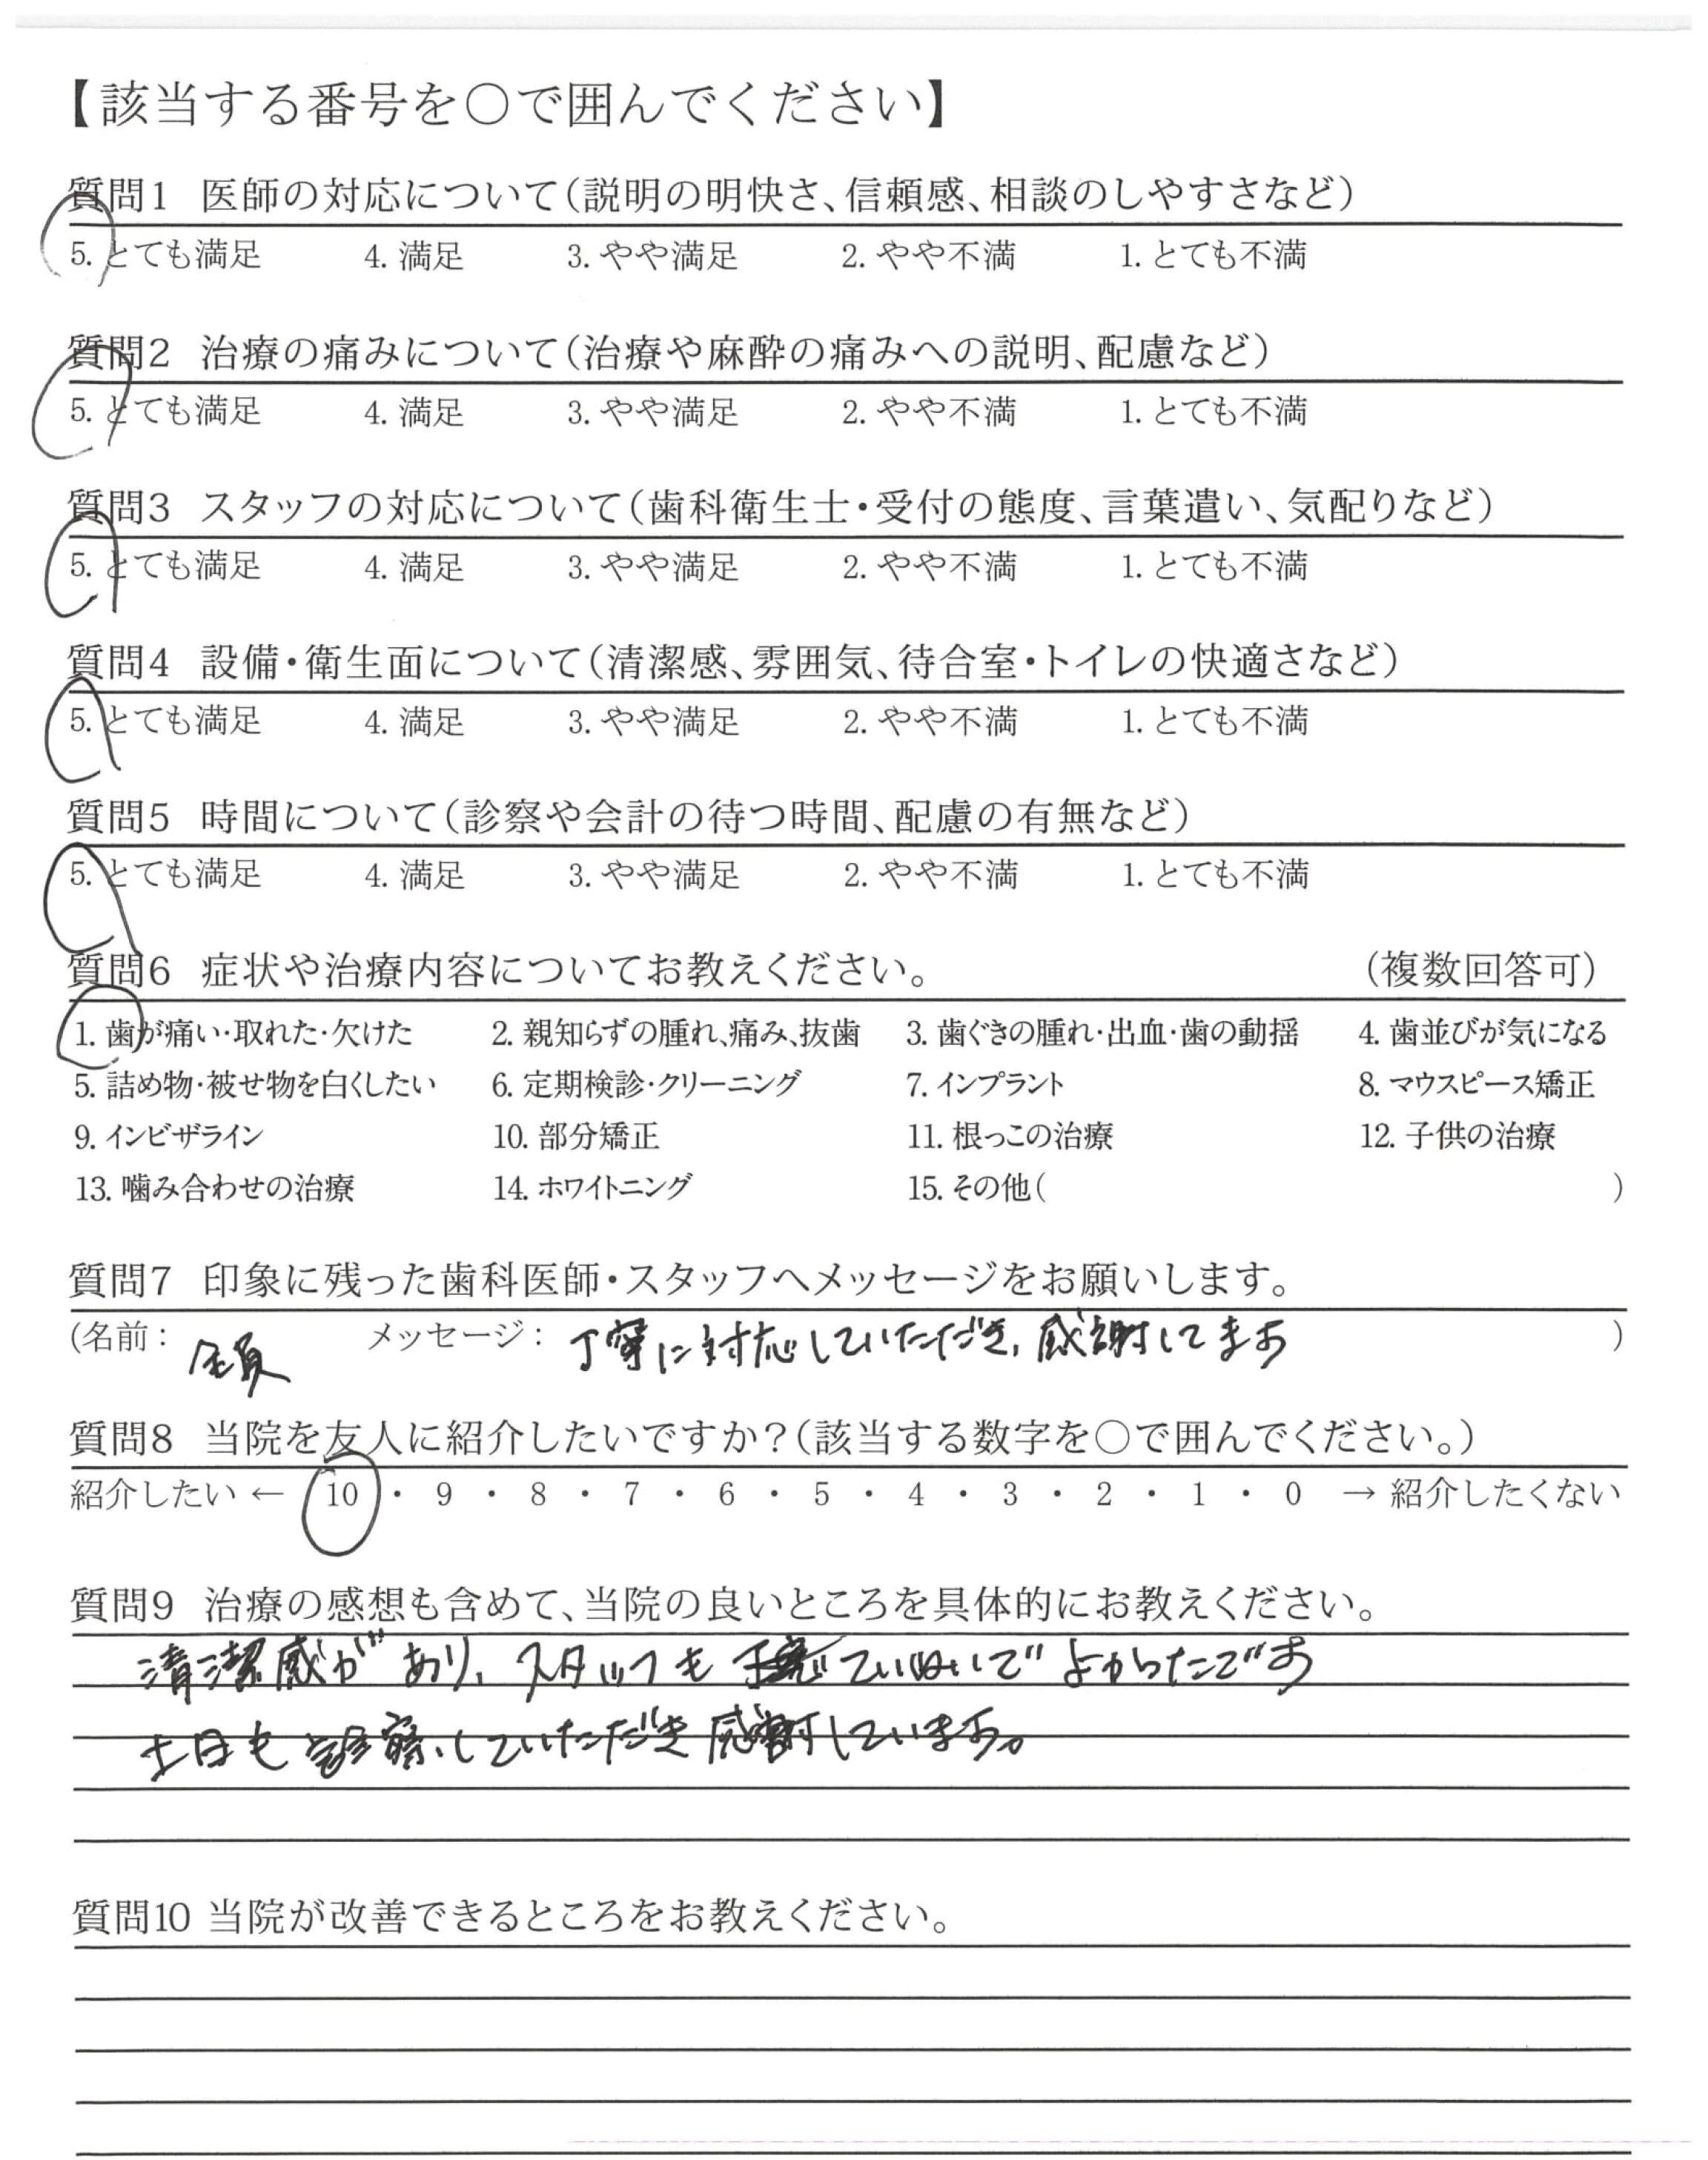 【該当する番号を○で囲んでください】
質問1 医師の対応について（説明の明快さ、信頼感、相談のしやすさなど）
5. とても満足 4. 満足 3. やや満足 2. やや不満 1. とても不満
質問2 治療の痛みについて（治療や麻酔の痛みへの説明、配慮など）
5. とても満足 4. 満足 3. やや満足 2. やや不満 1. とても不満
質問3 スタッフの対応について（歯科衛生士・受付の態度、言葉遣い、気配りなど）
5. とても満足 4. 満足 3. やや満足 2. やや不満 1. とても不満
質問4 設備・衛生面について（清潔感、雰囲気、待合室・トイレの快適さなど）
5. とても満足 4. 満足 3. やや満足 2. やや不満 1. とても不満
質問5 時間について（診察や会計の待つ時間、配慮の有無など）
5. とても満足 4. 満足 3. やや満足 2. やや不満 1. とても不満
質問6 症状や治療内容についてお教えください。 （複数回答可）
1. 歯が痛い・取れた・欠けた 2. 親知らずの腫れ、痛み、抜歯 3. 歯ぐきの腫れ・出血・歯の動揺 4. 歯並びが気になる
5. 詰め物・被せ物を白くしたい 6. 定期検診・クリーニング 7. インプラント 8. マウスピース矯正
9. インビザライン 10. 部分矯正 11. 根っこの治療 12. 子供の治療
13. 噛み合わせの治療 14. ホワイトニング 15. その他（ ）
質問7 印象に残った歯科医師・スタッフへメッセージをお願いします。
（名前： メッセージ： 丁寧に対応していただき、感謝してます ）
質問8 当院を友人に紹介したいですか？（該当する数字を○で囲んでください。）
紹介したい ← 10 ・ 9 ・ 8 ・ 7 ・ 6 ・ 5 ・ 4 ・ 3 ・ 2 ・ 1 ・ 0 → 紹介したくない
質問9 治療の感想も含めて、当院の良いところを具体的にお教えください。
清潔感があり、スタッフも ていねいでよかったです
土日も診察していただき感謝しています。
質問10 当院が改善できるところをお教えください。